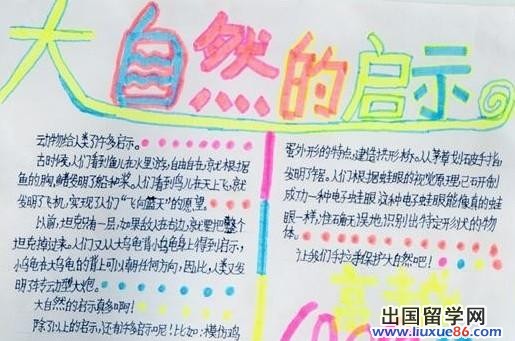 大自然的启示
动物给人类了许多启示。
古时候，人们看到鱼儿在水里游，自由自在，就根据
鱼的胸，鳍发明了船和桨。人们看到鸟儿在天上飞，就
发明了飞机，实现了人们“飞向蓝天”的愿望。
以前，坦克只有一层，如果敌人在右边，就要把整个
坦克掉过来。人们又从大乌龟背小乌龟身上得到启示，
小乌龟在大乌龟的背上可以朝任何方向，因此，人类又发
明了转动型大炮。
大自然的启示真多啊！
除了以上的启示，还有许多启示呢！比如：模仿鸡
蛋外形的特点，建造拱形桥。从茅草划石皮手指
发明了锯。人们根据蛙眼的视觉原理，已石开制
成功一种电子蛙眼，这种电子蛙眼能像真的蛙
眼一样，准确无误地识别出特定形状的物
体。
让我们手拉手保护大自然吧！
出国留学网
www.liuxue86.com